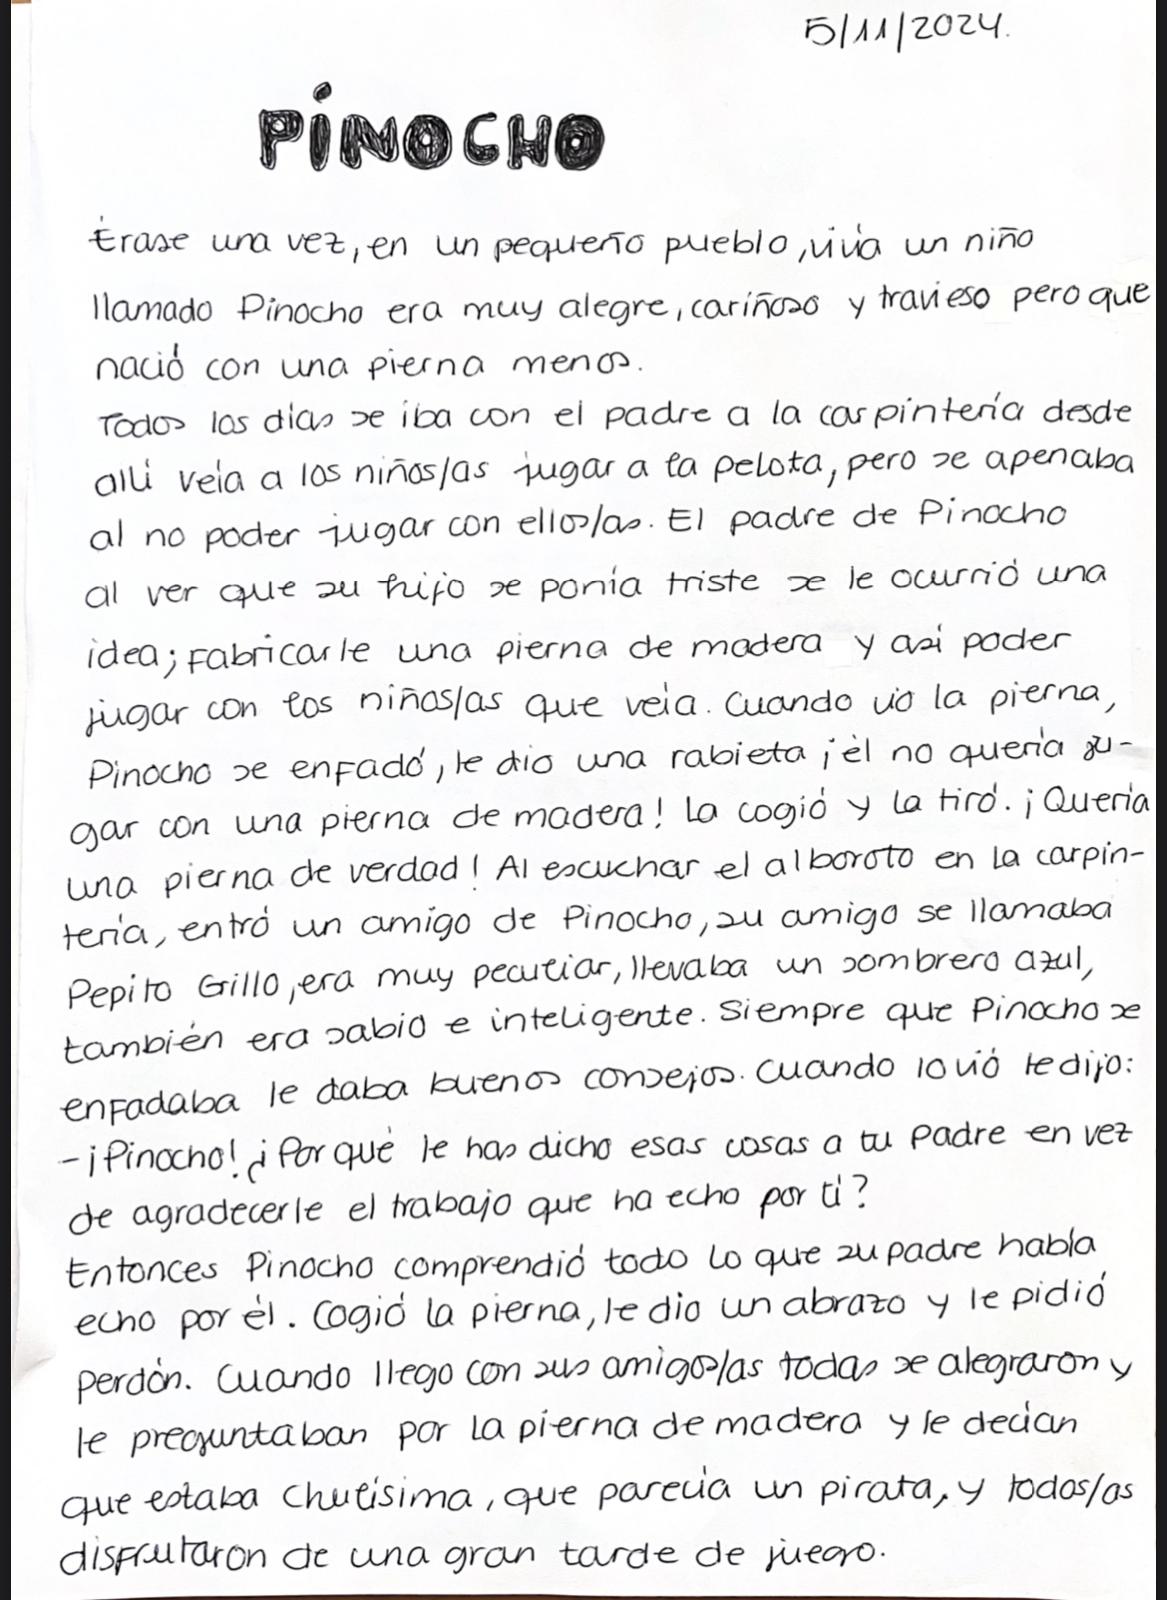 5/11/2024.
PÍNOCHO
Érase una vez, en un pequeño pueblo, vivía un niño
llamado Pinocho era muy alegre, cariñoso y travieso pero que
nació con una pierna menos.
Todos los días se iba con el padre a la carpintería desde
allí veía a los niños/as jugar a la pelota, pero se apenaba
al no poder jugar con ellos/as. El padre de Pinocho
al ver que su hijo se ponía triste se le ocurrió una
idea; Fabricarle una pierna de madera y así poder
jugar con los niños/as que veía. Cuando vió la pierna,
Pinocho se enfadó, le dio una rabieta ¡él no quería ju-
gar con una pierna de madera! La cogió y la tiró. ¡Quería
una pierna de verdad! Al escuchar el alboroto en la carpin-
tería, entró un amigo de Pinocho, su amigo se llamaba
Pepito Grillo, era muy peculiar, llevaba un sombrero azul,
también era sabio e inteligente. Siempre que Pinocho se
enfadaba le daba buenos consejos. Cuando lo vió le dijo:
- ¡Pinocho! ¿Por qué le has dicho esas cosas a tu Padre en vez
de agradecerle el trabajo que ha echo por tí?
Entonces Pinocho comprendió todo lo que su padre había
echo por él. Cogió la pierna, le dio un abrazo y le pidió
perdón. Cuando llego con sus amigos/as todas se alegraron y
le preguntaban por la pierna de madera y le decían
que estaba chulísima, que parecía un pirata, y todos/as
disfrutaron de una gran tarde de juego.